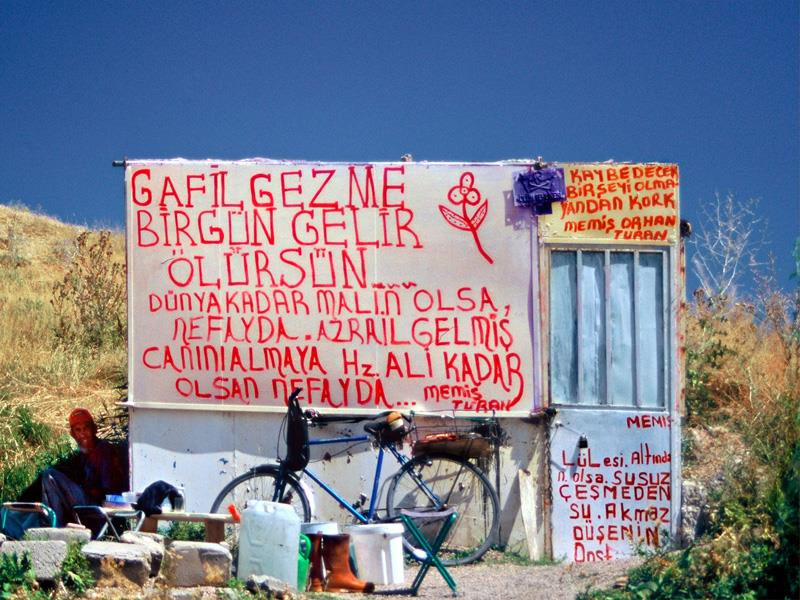 GAFİL GEZME
BİRGÜN GELİR
ÖLÜRSÜN...
DÜNYA KADAR MALIN OLSA,
NEFAYDA. AZRAİL GELMİŞ
CANINIALMAYA Hz. ALİ KADAR
OLSAN NEFAYDA... MEMİŞ
TURAN
KAYBEDECEK
BİRŞEYİ OLMA
YANDAN KORK
MEMİŞ ORHAN
TURAN
MEMİŞ
LÜLesi. Altında
n. olsa. SUSUZ
ÇEŞMEDEN
SU. AKmaz
DÜŞENİN
Dost